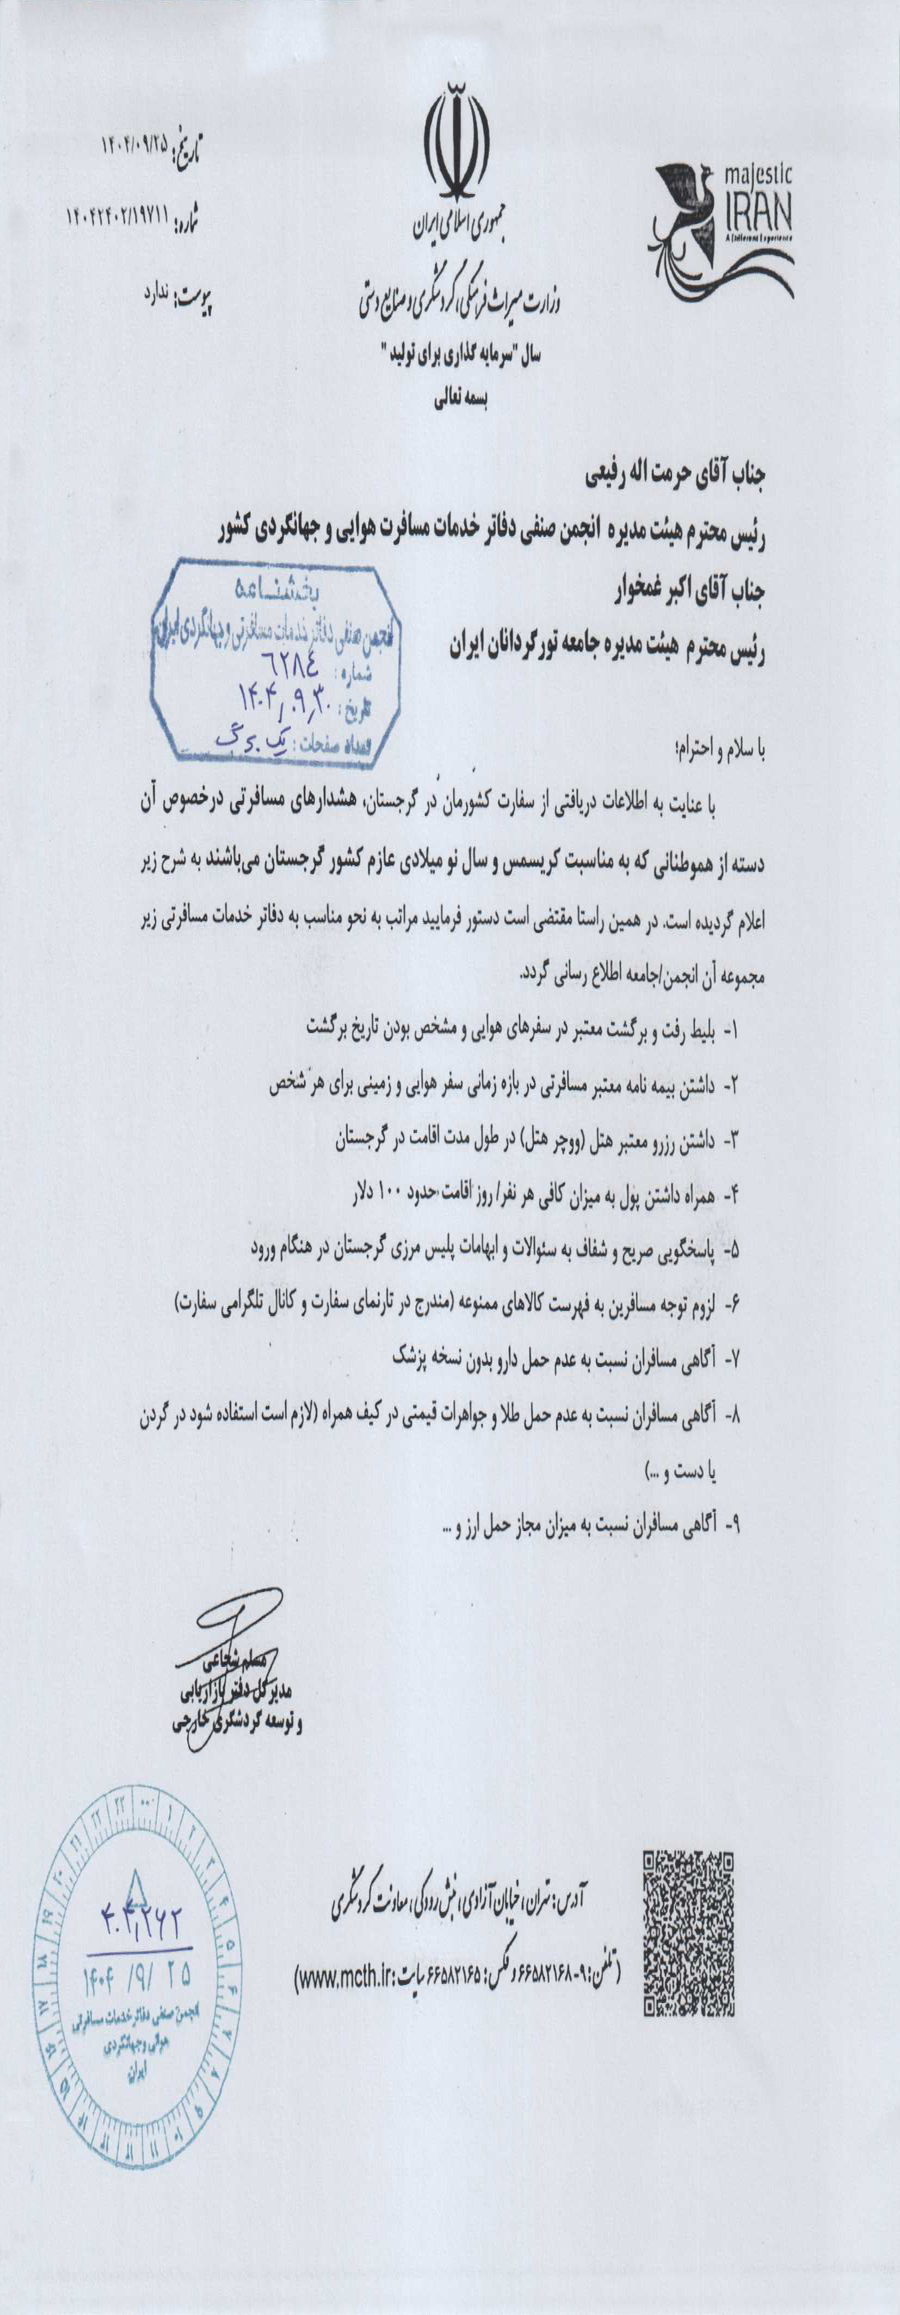 majestic
IRAN
A Different Experience
جمهوری اسلامی ایران
وزارت میراث فرهنگی، گردشگری و صنایع دستی
سال "سرمایه گذاری برای تولید "
بسمه تعالی
تاریخ: ۱۴۰۴/۰۹/۲۵
شماره: ۱۴۰۴۲۴۰۲/۱۹۷۱۱
پیوست: ندارد
جناب آقای حرمت اله رفیعی
رئیس محترم هیئت مدیره انجمن صنفی دفاتر خدمات مسافرت هوایی و جهانگردی کشور
جناب آقای اکبر غمخوار
رئیس محترم هیئت مدیره جامعه تورگردانان ایران
بخشنامه
انجمن صنفی دفاتر خدمات مسافرتی و جهانگردی ایران
شماره: ۶۲۸۴
تاریخ: ۱۴۰۴/۰۹/۳۰
تعداد صفحات: یک برگ
با سلام و احترام؛
با عنایت به اطلاعات دریافتی از سفارت کشورمان در گرجستان، هشدارهای مسافرتی درخصوص آن
دسته از هموطنانی که به مناسبت کریسمس و سال نو میلادی عازم کشور گرجستان می‌باشند به شرح زیر
اعلام گردیده است. در همین راستا مقتضی است دستور فرمایید مراتب به نحو مناسب به دفاتر خدمات مسافرتی زیر
مجموعه آن انجمن/جامعه اطلاع رسانی گردد.
۱- بلیط رفت و برگشت معتبر در سفرهای هوایی و مشخص بودن تاریخ برگشت
۲- داشتن بیمه نامه معتبر مسافرتی در بازه زمانی سفر هوایی و زمینی برای هر شخص
۳- داشتن رزرو معتبر هتل (ووچر هتل) در طول مدت اقامت در گرجستان
۴- همراه داشتن پول به میزان کافی هر نفر/ روز اقامت حدود ۱۰۰ دلار
۵- پاسخگویی صریح و شفاف به سئوالات و ابهامات پلیس مرزی گرجستان در هنگام ورود
۶- لزوم توجه مسافرین به فهرست کالاهای ممنوعه (مندرج در تارنمای سفارت و کانال تلگرامی سفارت)
۷- آگاهی مسافران نسبت به عدم حمل دارو بدون نسخه پزشک
۸- آگاهی مسافران نسبت به عدم حمل طلا و جواهرات قیمتی در کیف همراه (لازم است استفاده شود در گردن
یا دست و ...)
۹- آگاهی مسافران نسبت به میزان مجاز حمل ارز و ...
مسلم شجاعی
مدیر کل دفتر بازاریابی
و توسعه گردشگری خارجی
۴۰۴٫۲۶۲
۱۴۰۴ /۹/ ۲۵
انجمن صنفی دفاتر خدمات مسافرتی
هوائی و جهانگردی
ایران
آدرس: تهران، خیابان آزادی، نبش رودکی، معاونت گردشگری
(تلفن: ۹-۶۶۵۸۲۱۶۸ و فکس: ۶۶۵۸۲۱۶۵ سایت: www.mcth.ir)